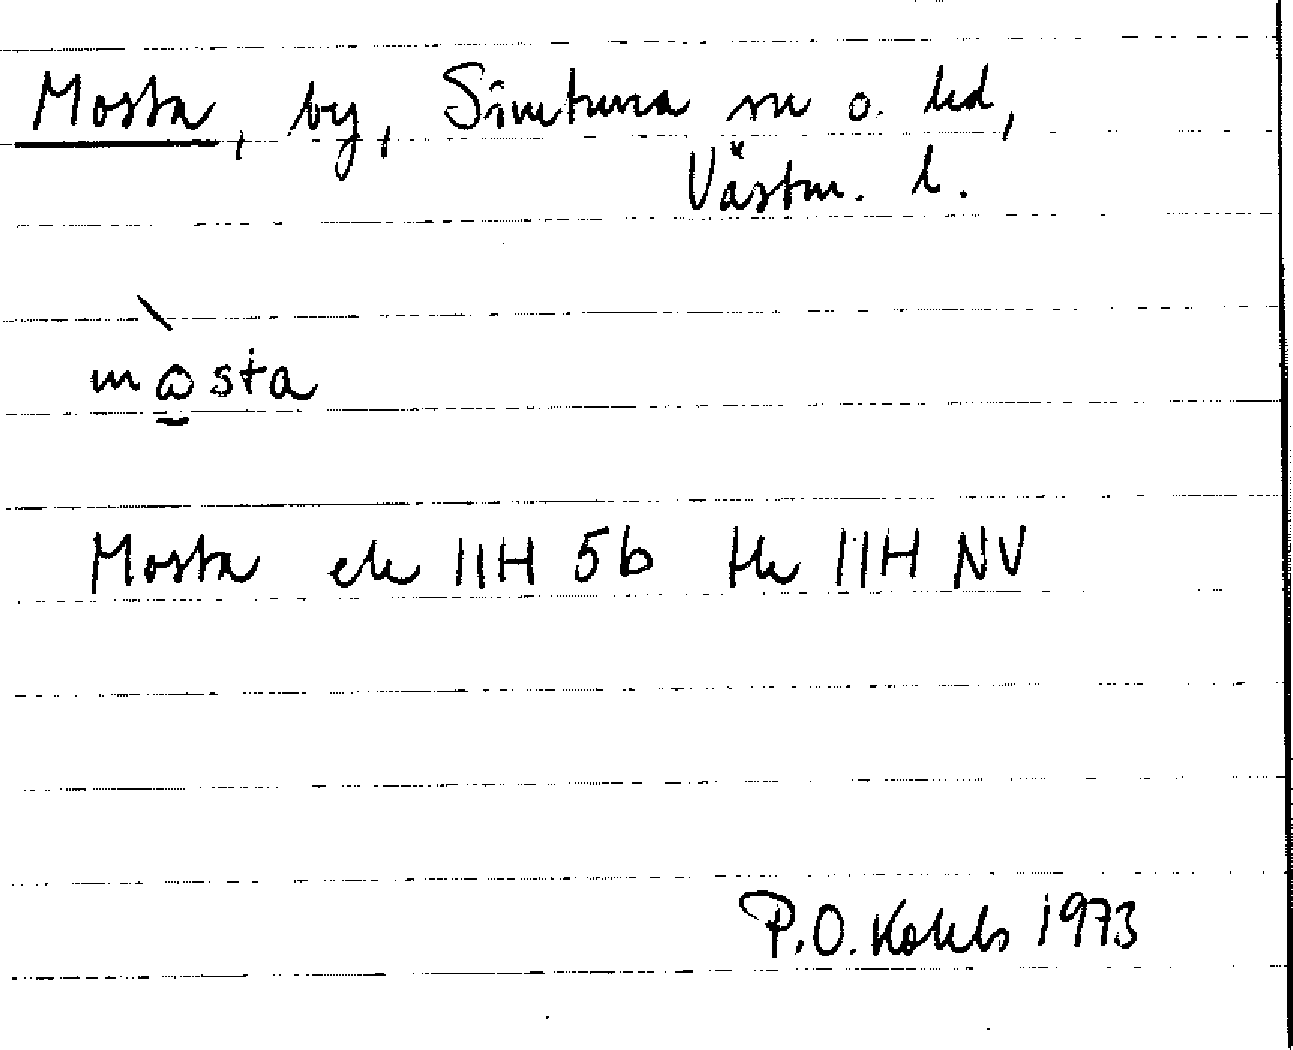 Mosta, by, Simtuna sn o. hd,
Västm. l.
mo̲sta
Mosta ek 11H 5b tk 11H NV
P.O. 1973